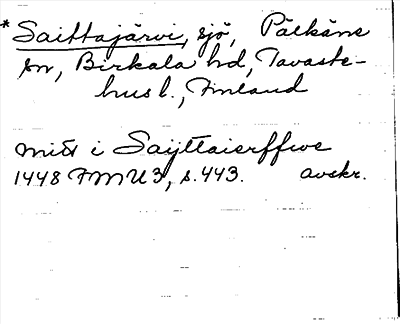 *Saittajärvi, sjö, Pälkäne
sn, Birkala hd, Tavaste-
hus l., Finland
mitt i Saijttaierffwe
1448 FMU 3, s. 443. avskr.